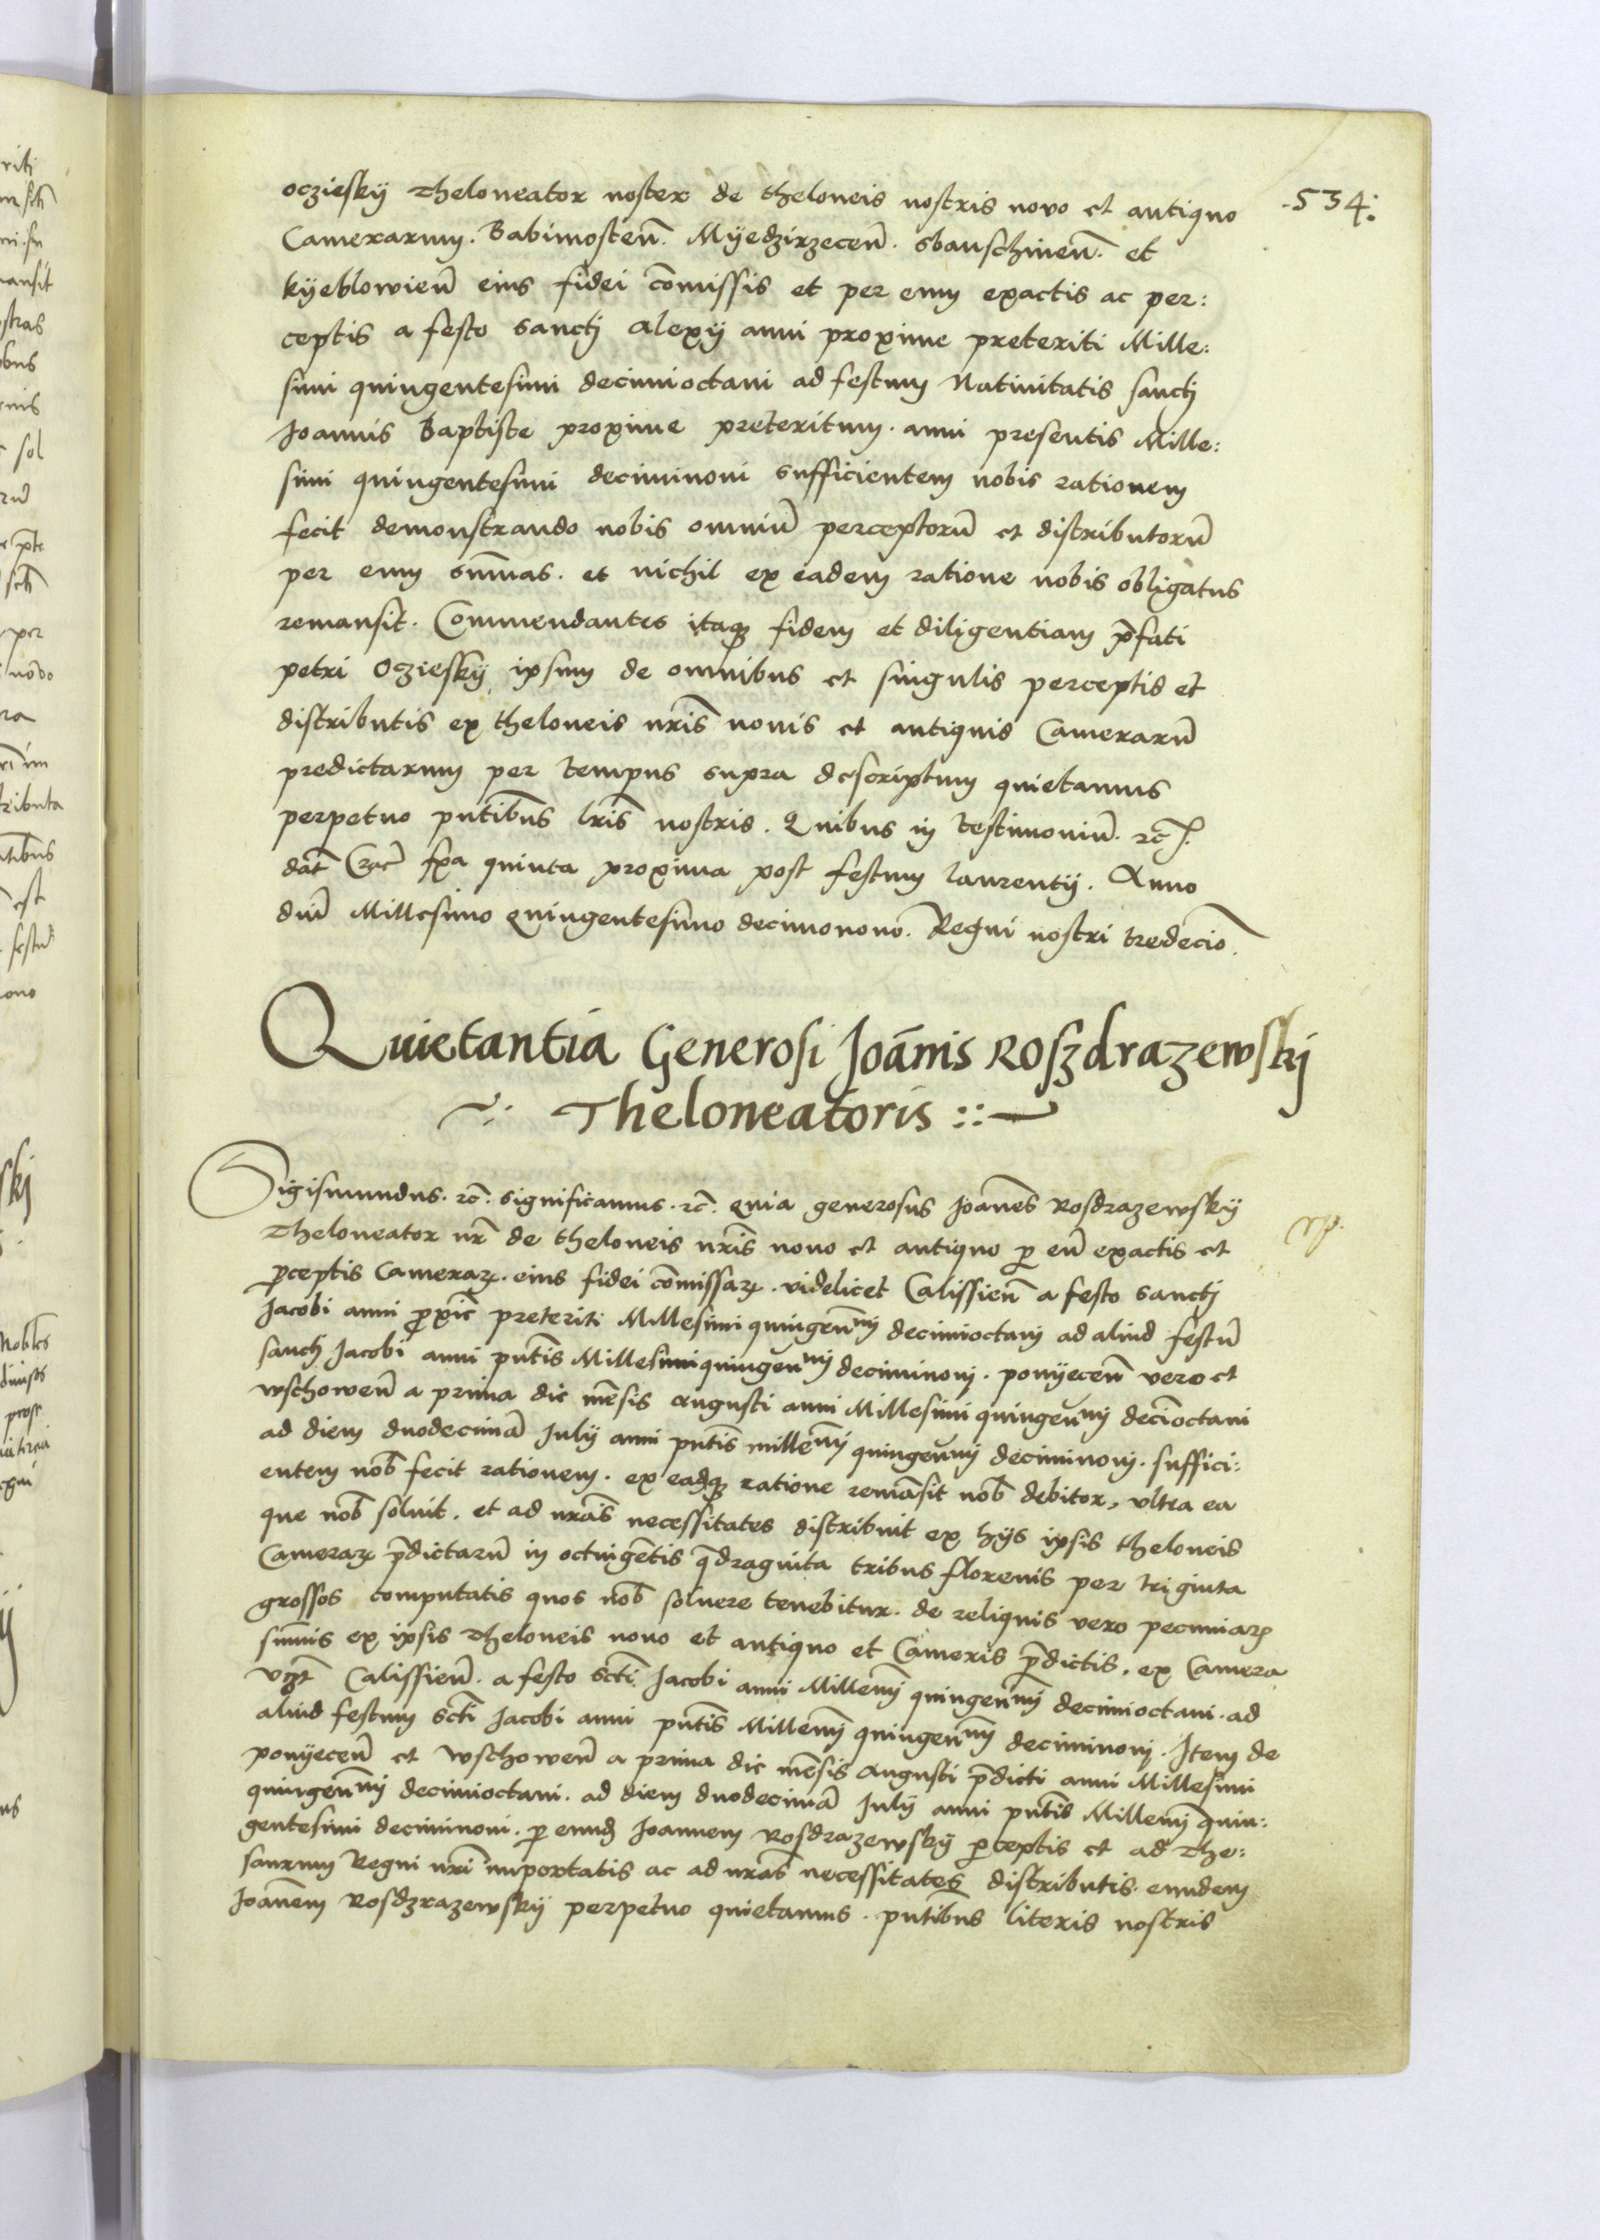 .534:
oczieskÿ Theloneator noster de theloneis nostris novo et antiquo
Camerarum. Babimosteñ. Mÿedzirzeceñ. sbanschineñ. et
kÿeblowieñ eius fidei com̄issis et per eum exactis ac per:
ceptis a festo sanctj Alexÿ anni proxime preteriti Mille:
simi quingentesimi decimioctaui ad festum Natiuitatis sanctj
Joannis Baptiste proxime preteritum. anni presentis Mille:
simi quingentesimi deciminoni sufficientem nobis rationem
fecit demonstrando nobis omniū perceptorū et distributorū
per eum sum̄as. et nichil ex eadem ratione nobis obligatus
remansit. Commendantes itaqꝫ fidem et diligentiam p̄fati
petri Oczieskÿ ipsum de omnibus et singulis perceptis et
distributis ex theloneis nr̄is nouis et antiquis Camerarū
predictarum per tempus supra descriptum quietamus
perpetuo pn̄tibus lr̄is nostris. Quibus in testimoniū. ꝛc̄.
dat̄ Crac̄ fr̄a quinta proxima post festum laurentÿ. Anno
dnī Millesimo Quingentesimo decimonono. Regni nostri tredecīo.
Quietantia Generosi Joānis Roszdrazewskj
Theloneatoris
Sigismundus. ꝛc̄. significamus. ꝛc̄. Quia generosus Joanēs Rosdrazewskÿ
Theloneator nr̄ de theloneis nr̄is nouo et antiquo ꝑ eū exactis et
ꝑceptis Cameraꝝ. eius fidei com̄issaꝝ. videlicet Calissieñ a festo sanctj
Jacobi anni ꝓxīe preteriti Millesimi quingen̄mj decimioctauj ad aliud festū
sanctj Jacobi anni pn̄tis Millesimi quingen̄mj deciminonj. ponÿeceñ vero et
wschoweñ a prima die mēsis Augusti anni Millesimi quingen̄mj decīoctaui
ad diem duodecimā Julÿ anni pn̄tis millen̄mj quingen̄mj deciminonj. suffici:
entem nob̄ fecit rationem. ex eadqꝫ ratione remāsit nob̄ debitor, vltra ea
que nob̄ soluit. et ad nr̄as necessitates distribuit ex hÿs ipsis theloneis
Cameraꝝ p̄dictarū in octuigētis q̄draginta tribus florenis per triginta
grossos computatis quos nob̄ soluere tenebitur. de reliquis vero pecuniaꝝ
sum̄is ex ipsis Theloneis nouo et antiquo et Cameris p̄dictis. ex Camera
vꝫt Calissieñ. a festo sctī Jacobi anni Millen̄mj quingen̄mj decimioctaui. ad
aliud festum sctī Jacobi anni pn̄tis Millen̄mj quingen̄mj deciminonj. Item de
ponÿeceñ et wschoweñ a prima die mēsis Augusti p̄dicti anni Millesimi
quingen̄mj decimioctaui. ad diem duodecimā Julÿ anni pn̄tis Millen̄mj quin:
gentesimi deciminoni. ꝑ eundꝫ Joannem Rosdrazewskÿ ꝑceptis et ad The:
saurum Regni nr̄i importatis ac ad nr̄as necessitates distributis. eundem
Joānem Rosdzrazewskÿ perpetuo quietamus. pn̄tibus literis nostris